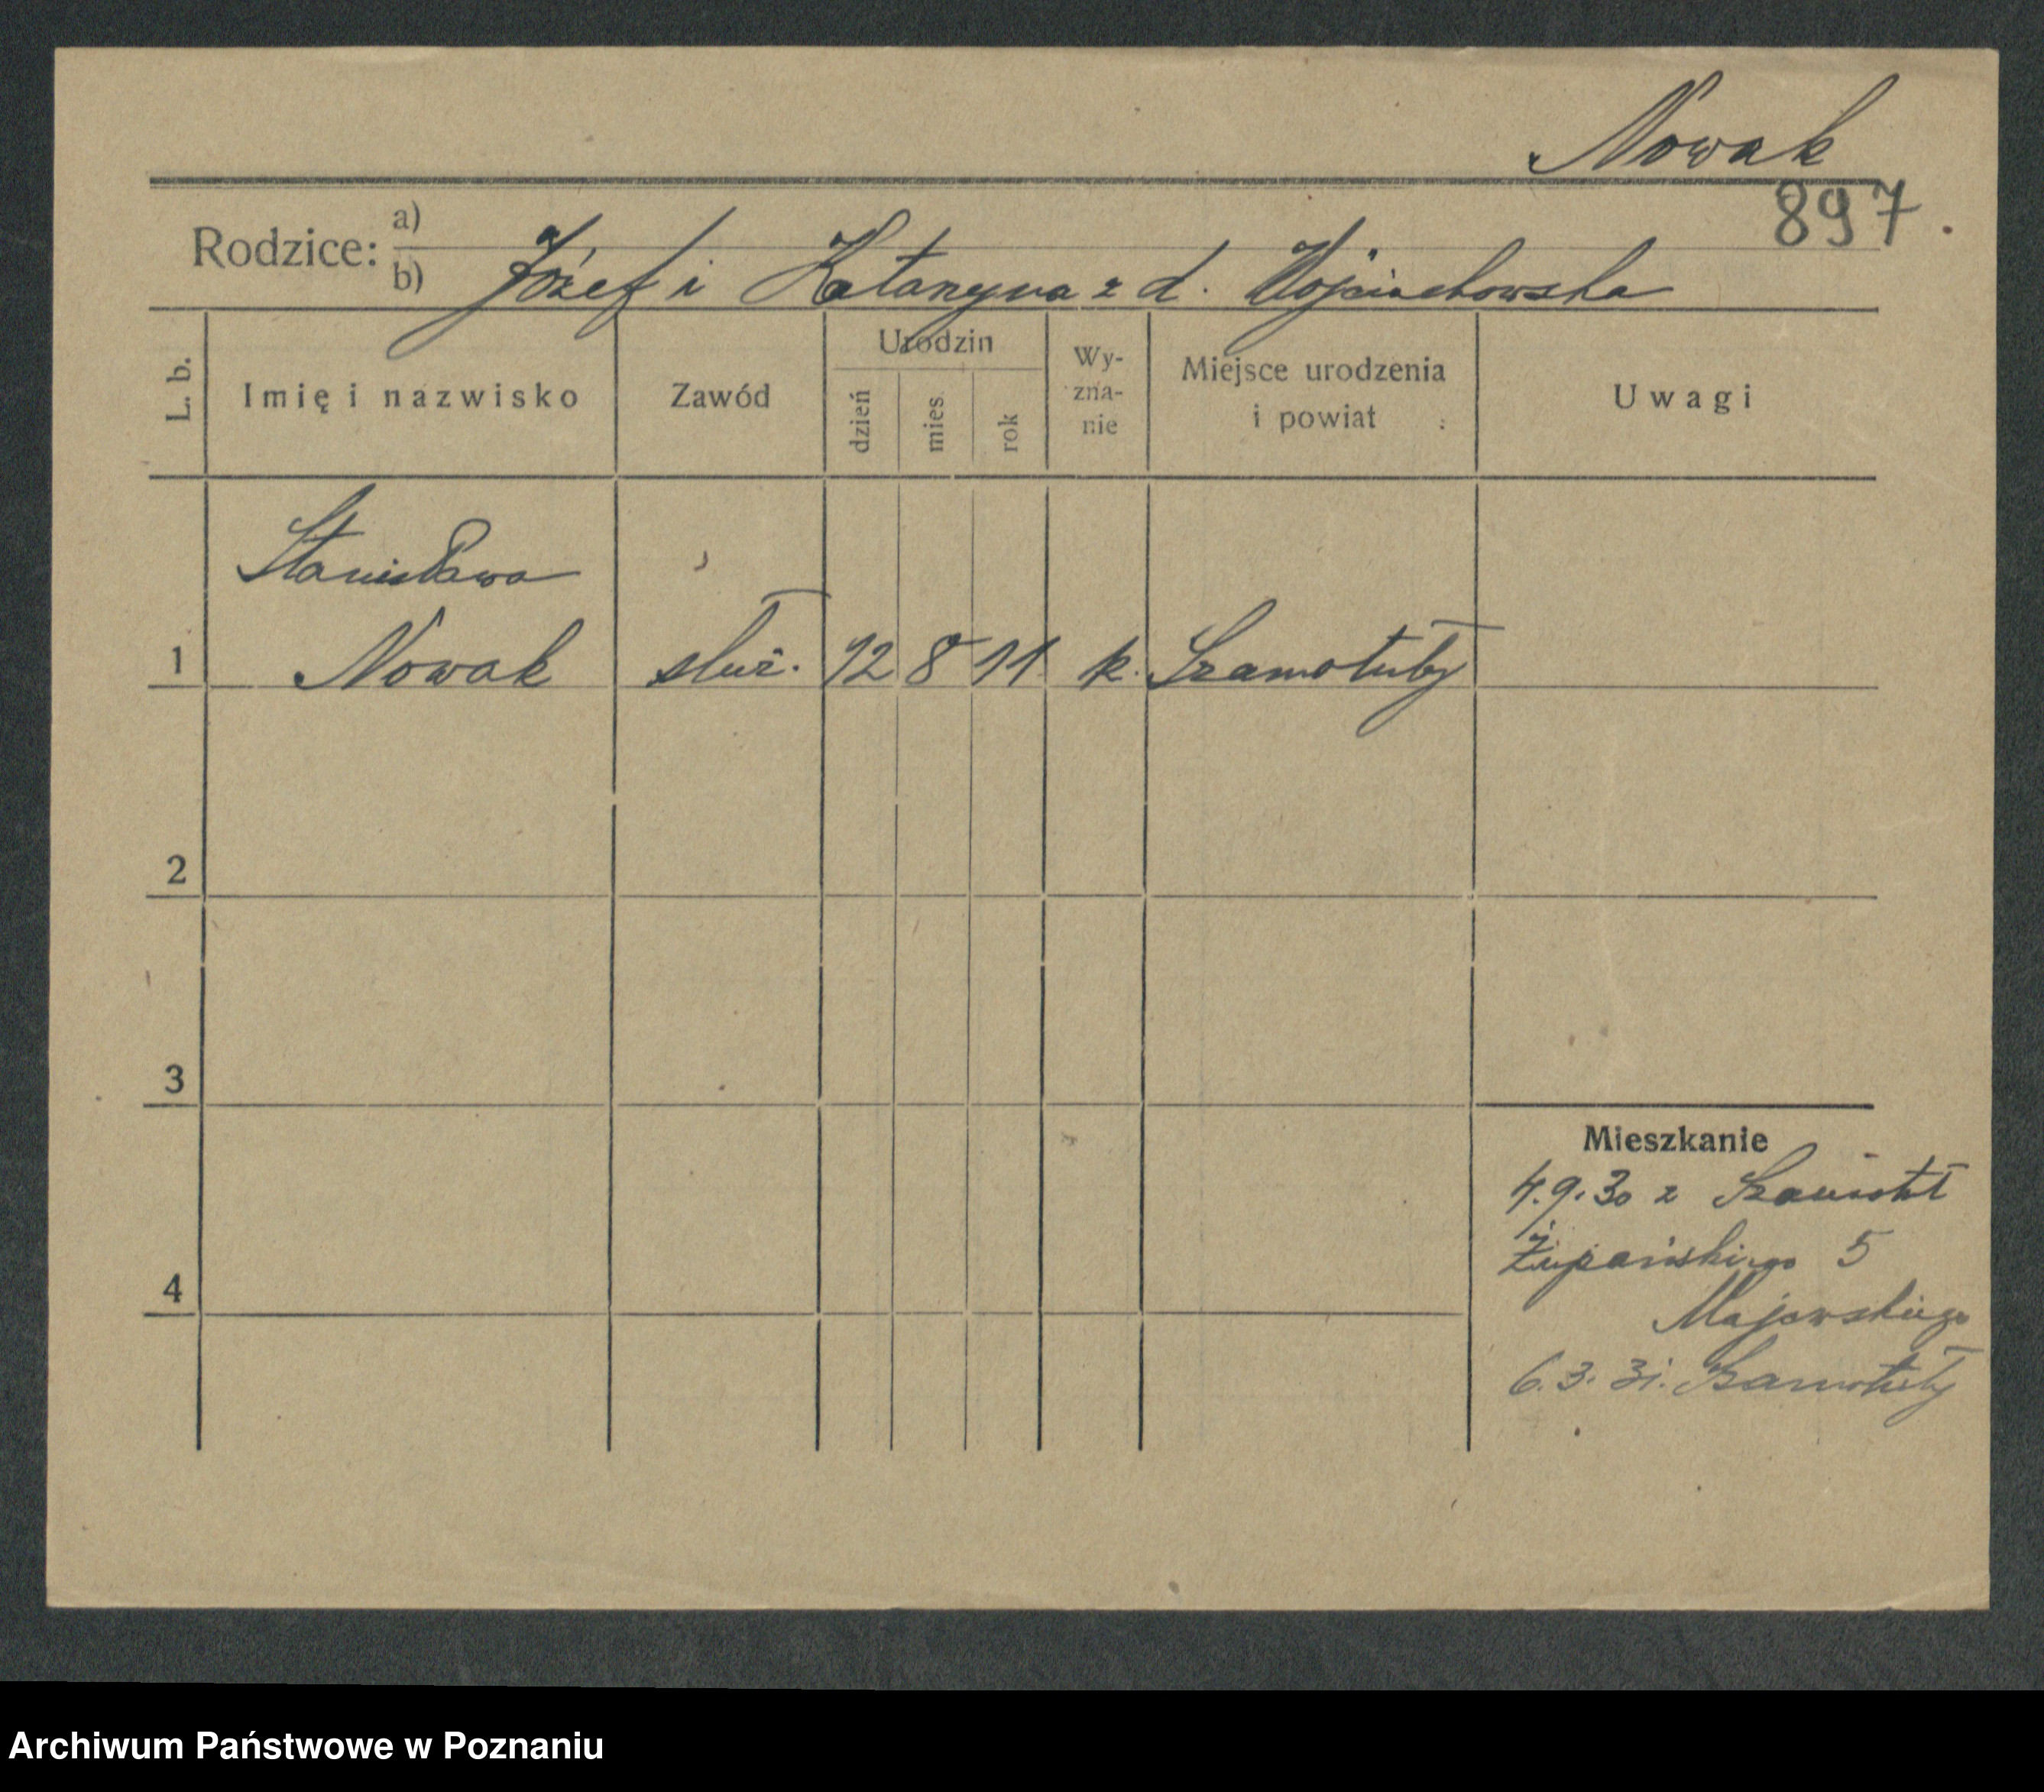 Nowak
897.
Rodzice: a)
b) Józef i Katarzyna z d. Wojciechowska
L. b.
Imię i nazwisko
Zawód
Urodzin
dzień
mies.
rok
Wy-
zna-
nie
Miejsce urodzenia
i powiat
Uwagi
Stanisława
1 Nowak służ. 12 8 11 k. Szamotuły
2
3
4
Mieszkanie
4.9.30 z
Żupańskiego 5
Majewskiego
6.3.31. Szamotuły
Archiwum Państwowe w Poznaniu